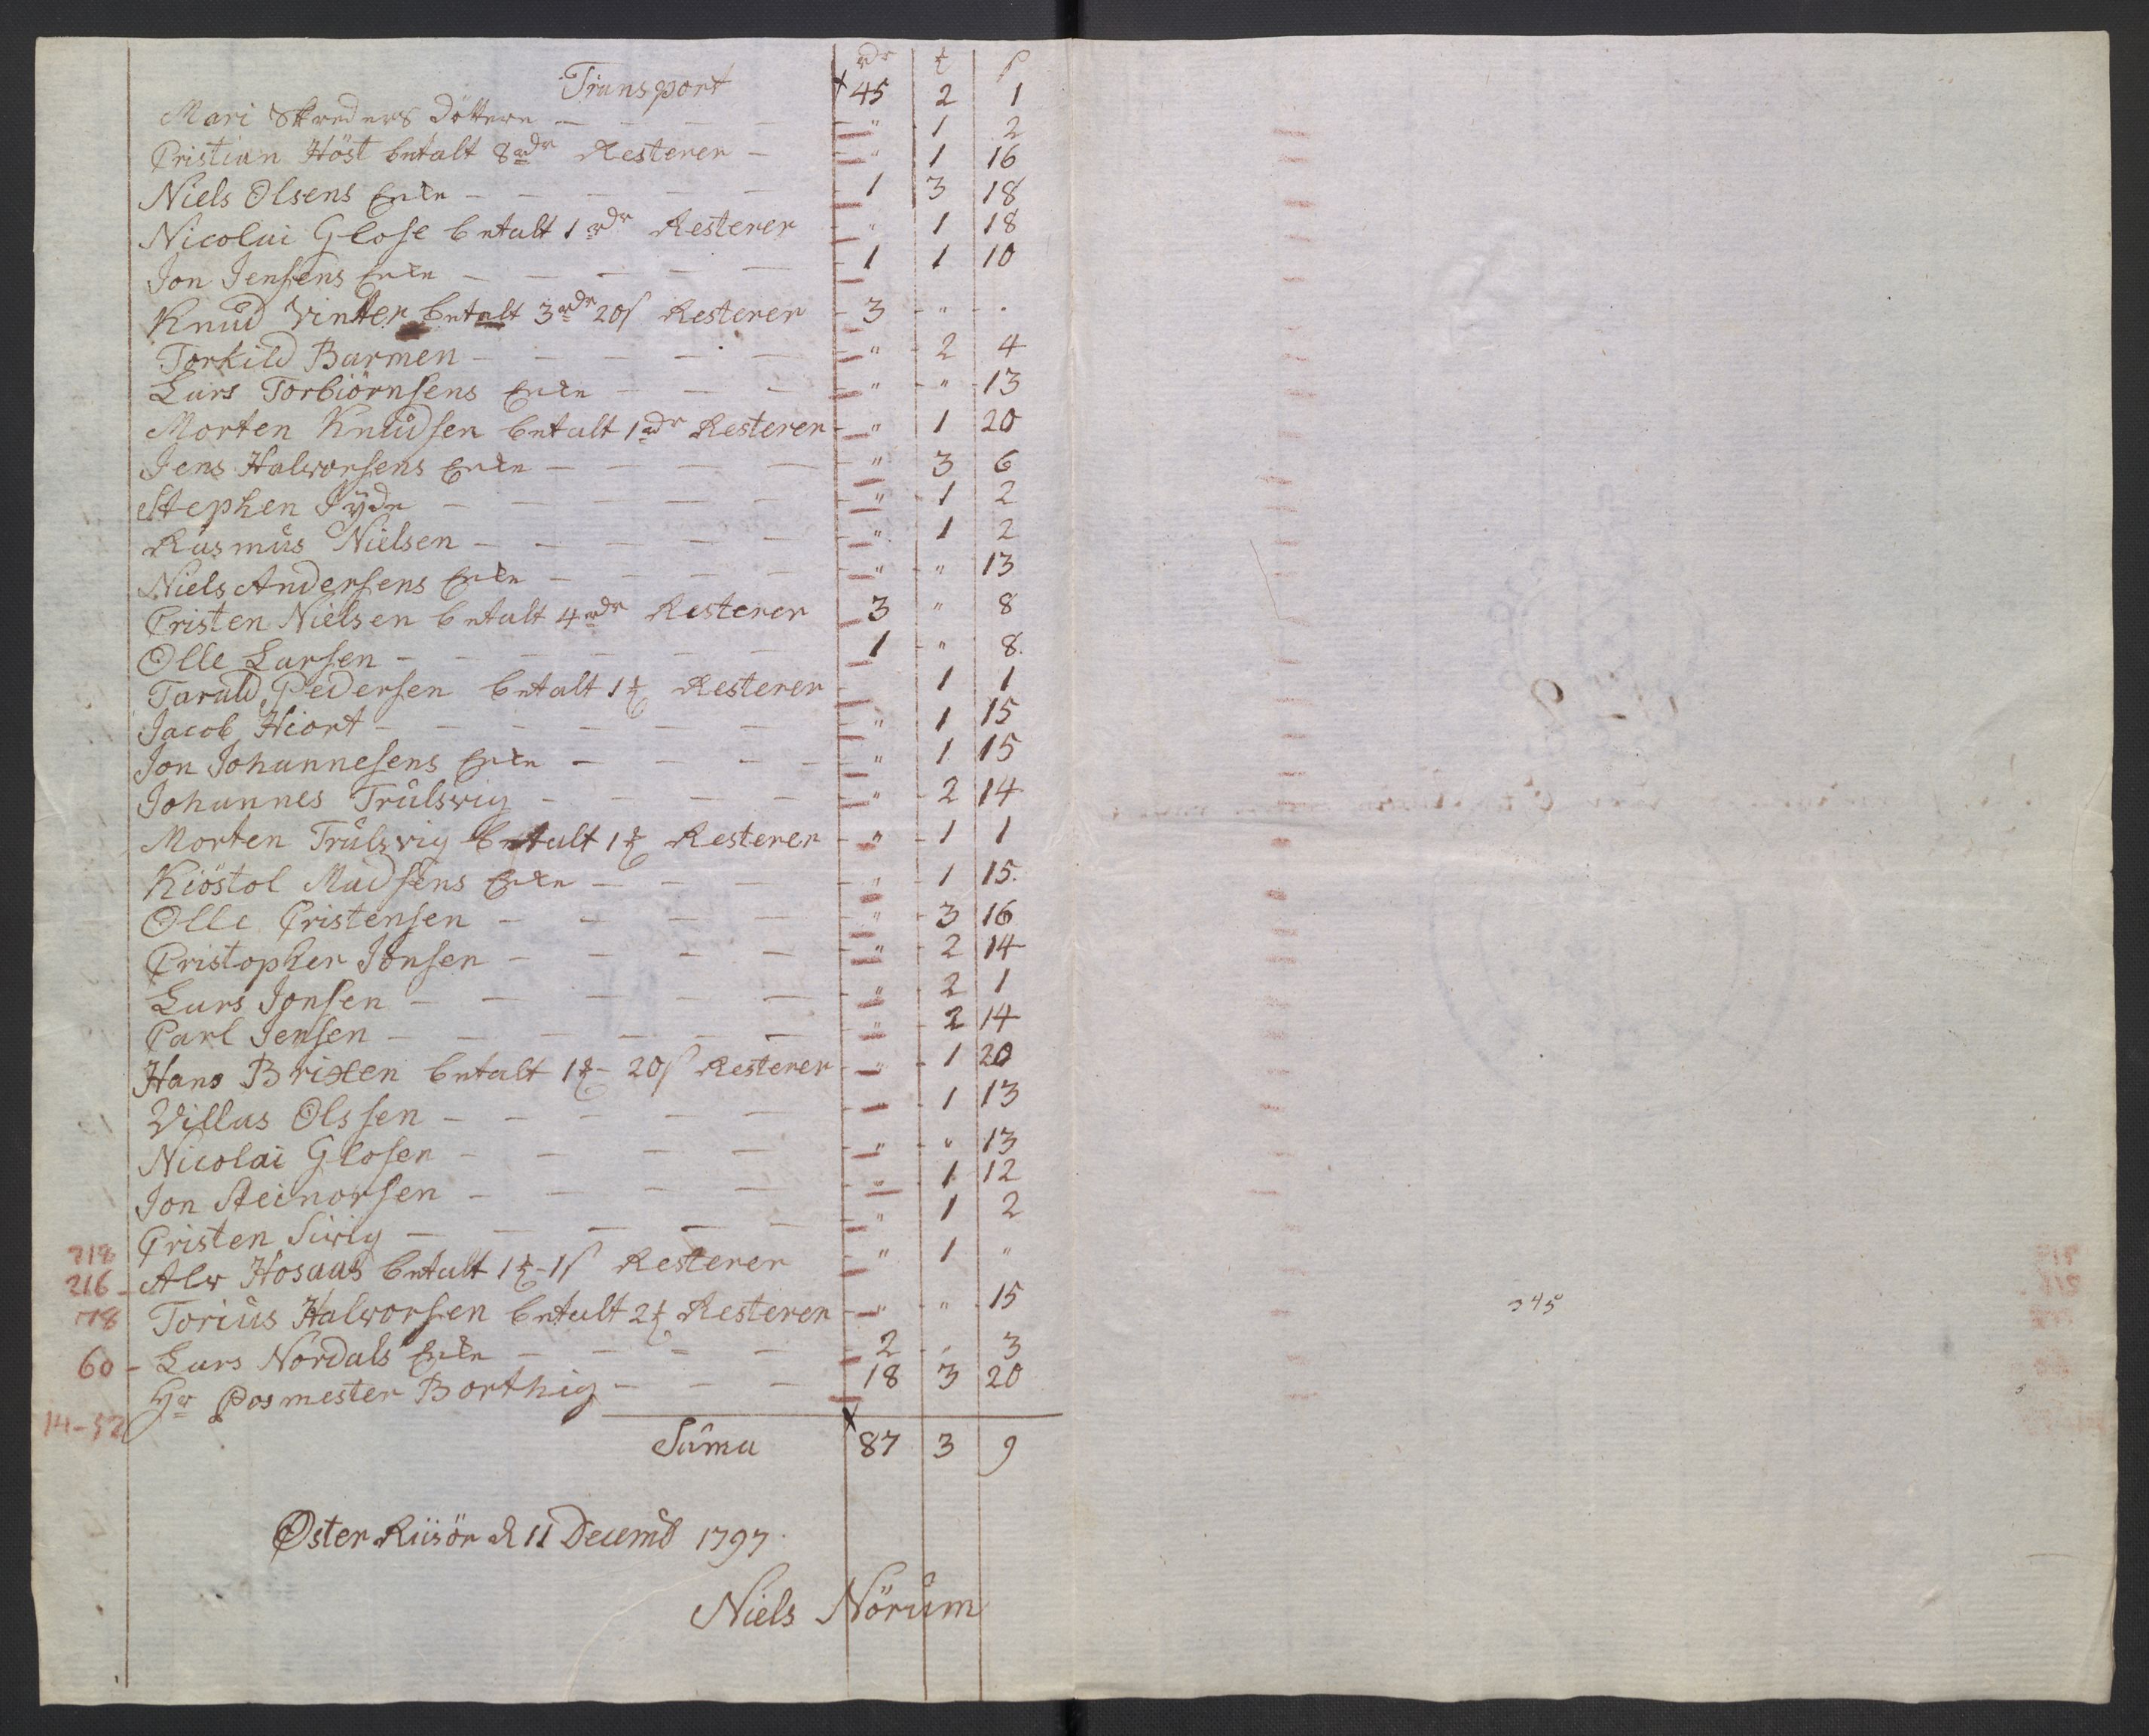 rdr ₰ s
Transport 45 2 1
Mari Skreders Döttere — — — — " 1 2
Cristian Höst betalt 8 rdr Resterer — " 1 16
Niels Olsens Enke — — — — — 1 3 18
Nicolai Glose betalt 1 rdr Resterer " 1 18
Jon Jensens Enke — — — — — 1 1 10
Knud Vinter betalt 3 rdr 20 s Resterer 3 " "
Torkild Barmen — — — — — " 2 4
Lars Torbiörnsens Enke — — — " " 13
Morten Knudsen betalt 1 rdr Resterer " 1 20
Jens Halvorsens Enke — — — — " 3 6
Stephen Jÿde — — — — — " 1 2
Rasmus Nielsen — — — — — " 1 2
Niels Andersens Enke — — — — " " 13
Cristen Nielsen betalt 4 rdr Resterer 3 " 8
Olle Larsen — — — — — — 1 " 8
Tarald Pedersen betalt 1 ₰ Resterer 1 1
Jacob Hiort — — — — — — " 1 15
Jon Johannesens Enke — — — — " 1 15
Johannes Trulsvig — — — — " 2 14
Morten Trulsvig betalt 1 ₰ Resterer " 1 1
Kiöstol Madsens Enke — — — " 1 15
Olle Cristensen — — — — " 3 16
Cristopher Jonsen — — — — " 2 14
Lars Jonsen — — — — — " 2 1
Carl Jensen — — — — — — " 2 14
Hans Brixen betalt 1 ₰ - 20 s Resterer " 1 20
Villas Olssen — — — — — 1 13
Nicolai Glosen — — — — " " 13
Jon Steinorsen — — — — " 1 12
Cristen Sivig — — — — — " 1 2
218
Alv Hosaas betalt 1 ₰ - 1 s Resterer " 1 "
216
Torius Halvorsen betalt 2 ₰ Resterer " " 15
178
60 - Lars Nordals Enke — — — — 2 " 3
Hr Posmester Borthig — — — 18 3 20
14-52
Suma 87 3 9
Öster Riisör d 11 Decemb 1797.
Niels Nörum
345